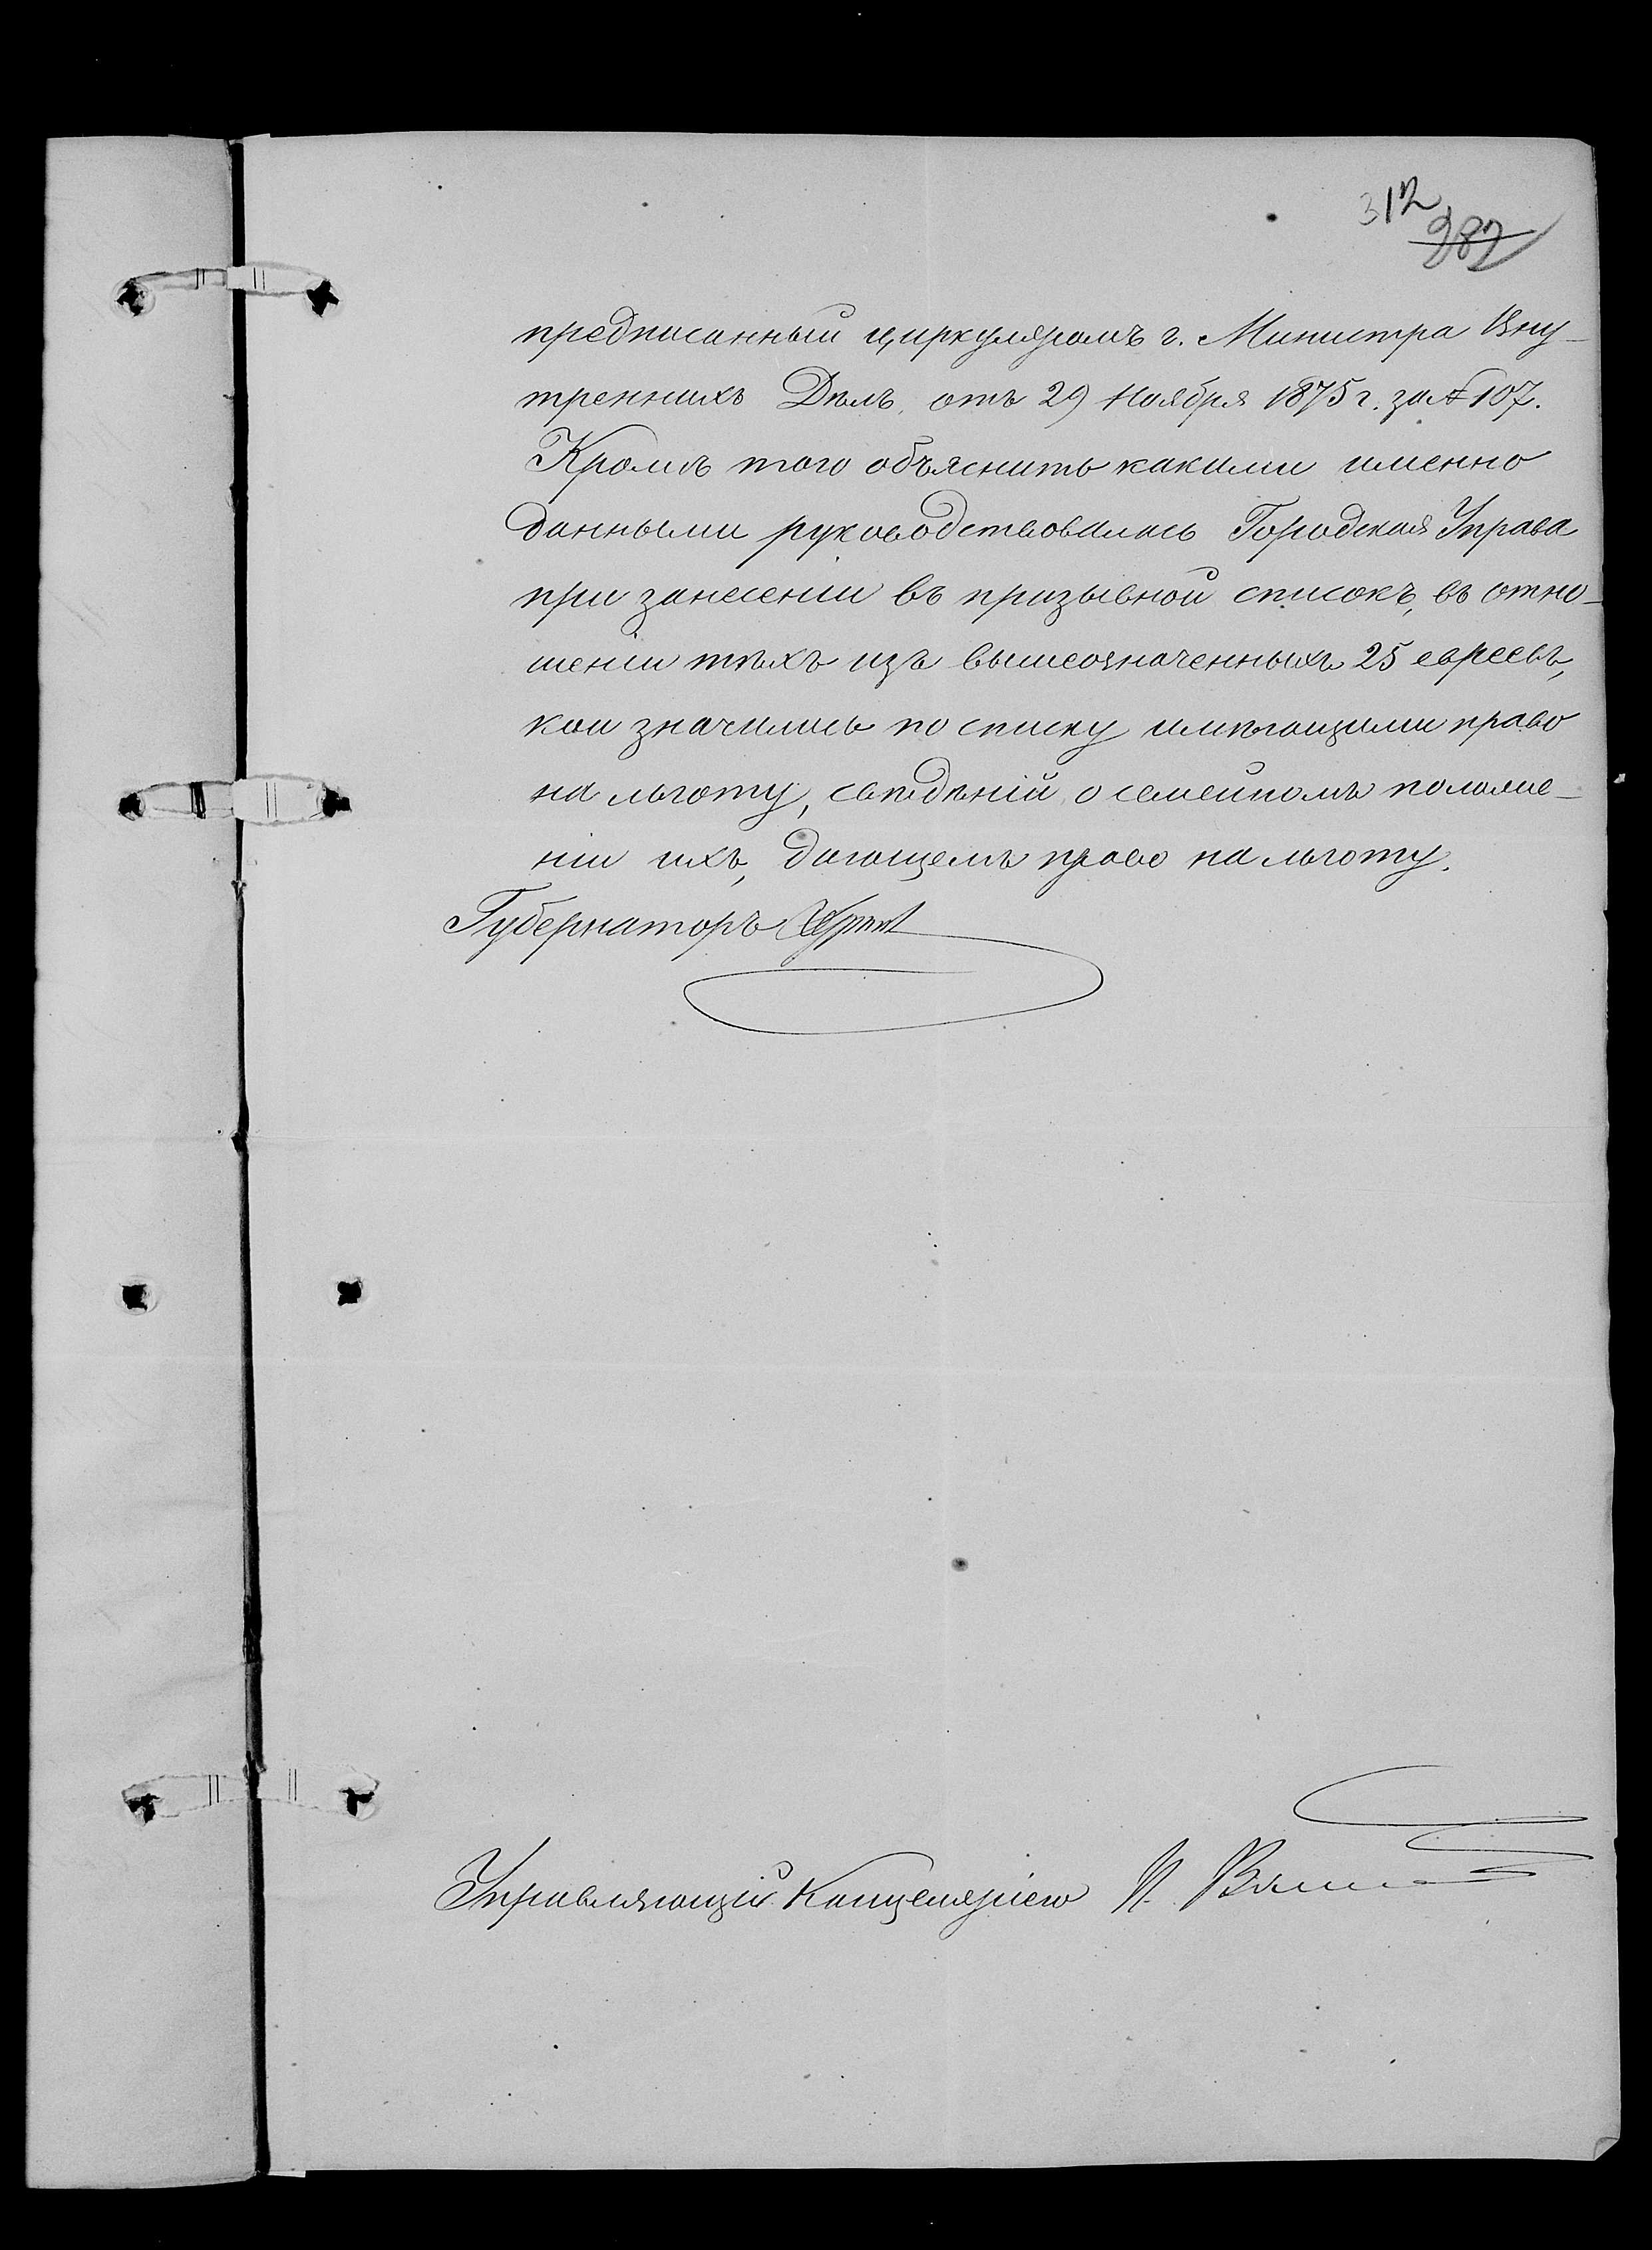 312
282
предписанный циркуляромъ г. Министра Вну-
треннихъ Дѣлъ, отъ 29 Ноября 1875 г. за № 107.
Кромѣ того объяснить какими именно
данными руководствовалась Городская Управа
при занесеніи въ призывной списокъ, въ отно-
шеніи тѣхъ изъ вышеозначенныхъ 25 евреевъ,
кои значились по списку имѣющими право
на льготу, свѣдѣній о семейномъ положе-
ніи ихъ, дающемъ право на льготу.
Губернаторъ
Управляющій Канцеляріею